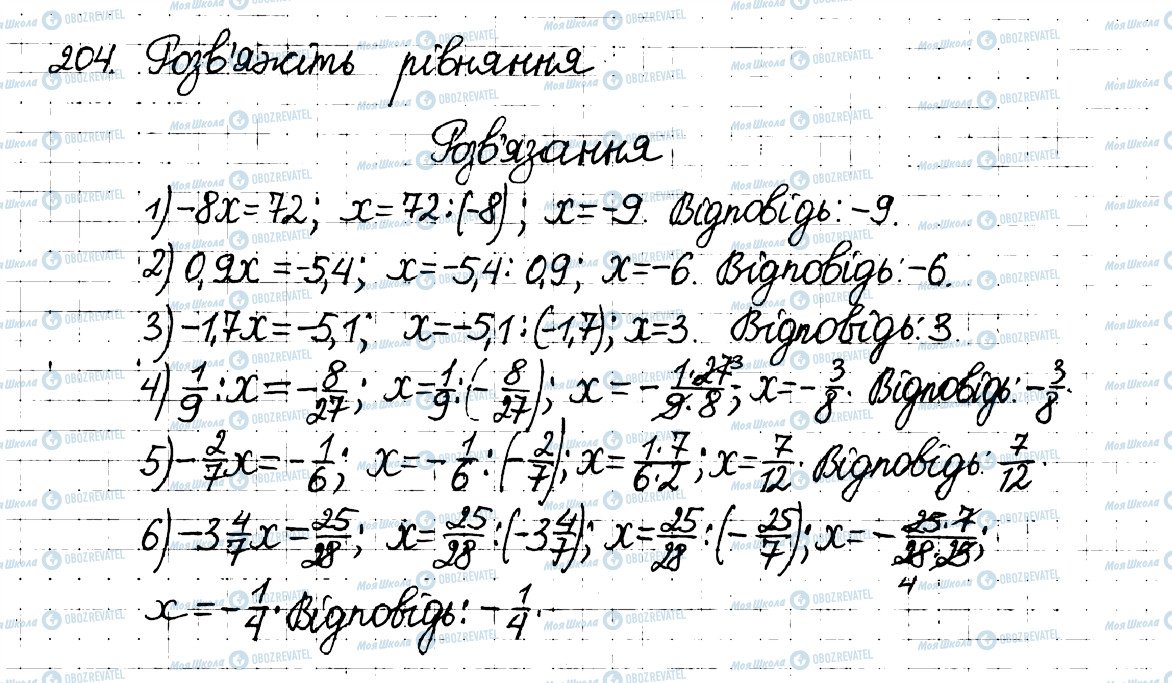 204. Розв'яжіть рівняння
Розв'язання
1) -8x = 72; x = 72 : (-8); x = -9. Відповідь: -9.
2) 0,9x = -5,4; x = -5,4 : 0,9; x = -6. Відповідь: -6.
3) -1,7x = -5,1; x = -5,1 : (-1,7); x = 3. Відповідь: 3.
4) 1/9 : x = -8/27; x = 1/9 : (-8/27); x = -(1·27 3)/(9·8); x = -3/8. Відповідь: -3/8.
5) -2/7 x = -1/6; x = -1/6 : (-2/7); x = (1·7)/(6·2); x = 7/12. Відповідь: 7/12.
6) -3 4/7 x = 25/28; x = 25/28 : (-3 4/7); x = 25/28 : (-25/7); x = -(25·7)/(28·25);
4
x = -1/4. Відповідь: -1/4.
Моя Школа OBOZREVATEL